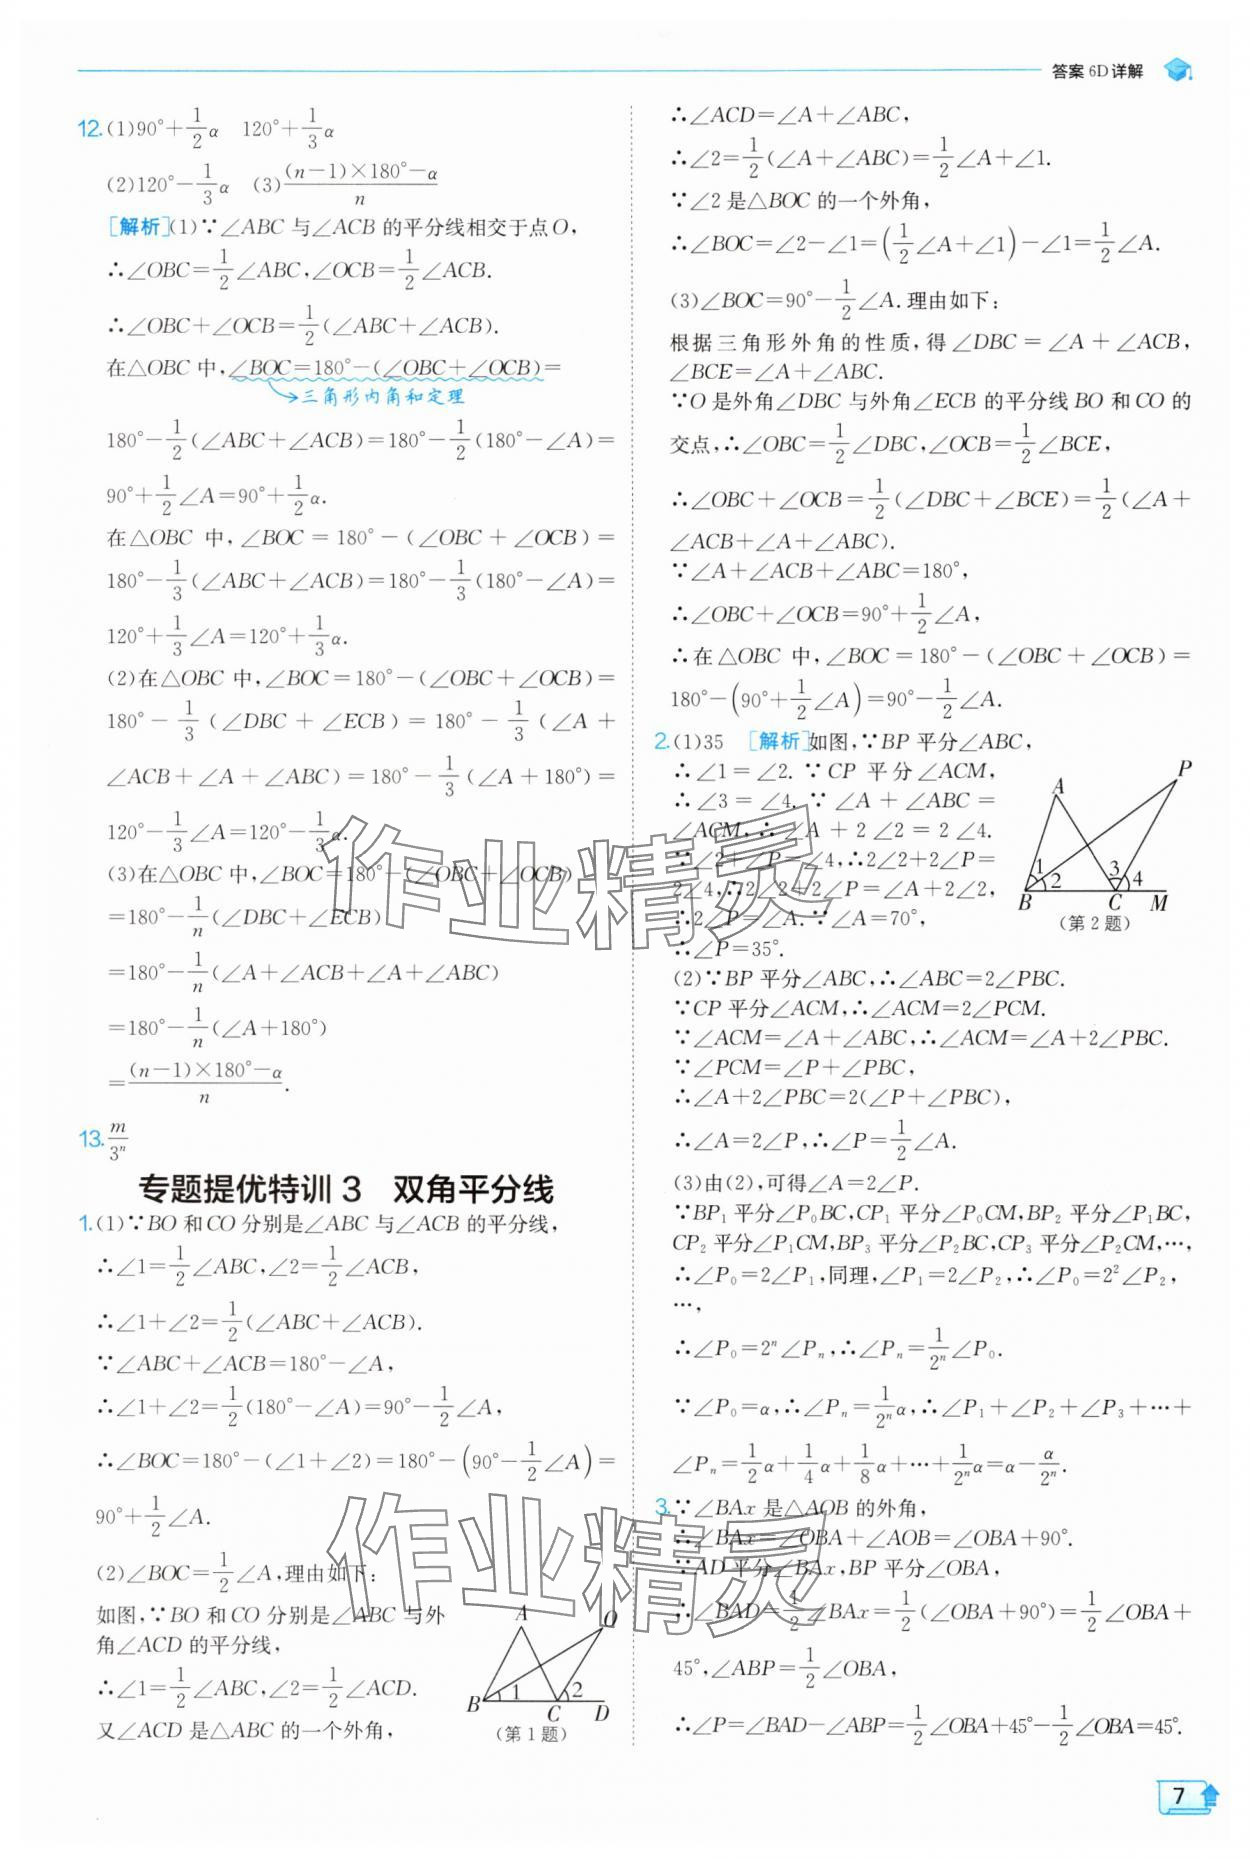 答案 6D 详解
12. (1)90°+$\frac{1}{2}$α　120°+$\frac{1}{3}$α
(2)120°-$\frac{1}{3}$α　(3)$\frac{(n-1)×180°-α}{n}$
[解析](1)∵∠ABC 与∠ACB 的平分线相交于点O,
∴∠OBC=$\frac{1}{2}$∠ABC,∠OCB=$\frac{1}{2}$∠ACB.
∴∠OBC+∠OCB=$\frac{1}{2}$(∠ABC+∠ACB).
在△OBC 中,∠BOC=180°-(∠OBC+∠OCB)=
三角形内角和定理
180°-$\frac{1}{2}$(∠ABC+∠ACB)=180°-$\frac{1}{2}$(180°-∠A)=
90°+$\frac{1}{2}$∠A=90°+$\frac{1}{2}$α.
在△OBC 中,∠BOC=180°-(∠OBC+∠OCB)=
180°-$\frac{1}{3}$(∠ABC+∠ACB)=180°-$\frac{1}{3}$(180°-∠A)=
120°+$\frac{1}{3}$∠A=120°+$\frac{1}{3}$α.
(2)在△OBC 中,∠BOC=180°-(∠OBC+∠OCB)=
180°-$\frac{1}{3}$(∠DBC+∠ECB)=180°-$\frac{1}{3}$(∠A+
∠ACB+∠A+∠ABC)=180°-$\frac{1}{3}$(∠A+180°)=
120°-$\frac{1}{3}$∠A=120°-$\frac{1}{3}$α.
(3)在△OBC 中,∠BOC=180°-(∠OBC+∠OCB)
=180°-$\frac{1}{n}$(∠DBC+∠ECB)
=180°-$\frac{1}{n}$(∠A+∠ACB+∠A+∠ABC)
=180°-$\frac{1}{n}$(∠A+180°)
=$\frac{(n-1)×180°-α}{n}$.
13. $\frac{m}{3^n}$
专题提优特训 3　双角平分线
1. (1)∵BO 和CO 分别是∠ABC 与∠ACB 的平分线,
∴∠1=$\frac{1}{2}$∠ABC,∠2=$\frac{1}{2}$∠ACB,
∴∠1+∠2=$\frac{1}{2}$(∠ABC+∠ACB).
∵∠ABC+∠ACB=180°-∠A,
∴∠1+∠2=$\frac{1}{2}$(180°-∠A)=90°-$\frac{1}{2}$∠A,
∴∠BOC=180°-(∠1+∠2)=180°-(90°-$\frac{1}{2}$∠A)=
90°+$\frac{1}{2}$∠A.
(2)∠BOC=$\frac{1}{2}$∠A,理由如下:
如图,∵BO 和CO 分别是∠ABC 与外
角∠ACD 的平分线,
∴∠1=$\frac{1}{2}$∠ABC,∠2=$\frac{1}{2}$∠ACD.
又∠ACD 是△ABC 的一个外角,
A O
B 1 C 2 D
(第 1 题)
∴∠ACD=∠A+∠ABC,
∴∠2=$\frac{1}{2}$(∠A+∠ABC)=$\frac{1}{2}$∠A+∠1.
∵∠2 是△BOC 的一个外角,
∴∠BOC=∠2-∠1=($\frac{1}{2}$∠A+∠1)-∠1=$\frac{1}{2}$∠A.
(3)∠BOC=90°-$\frac{1}{2}$∠A.理由如下:
根据三角形外角的性质,得∠DBC=∠A+∠ACB,
∠BCE=∠A+∠ABC.
∵O 是外角∠DBC 与外角∠ECB 的平分线 BO 和 CO 的
交点,∴∠OBC=$\frac{1}{2}$∠DBC,∠OCB=$\frac{1}{2}$∠BCE,
∴∠OBC+∠OCB=$\frac{1}{2}$(∠DBC+∠BCE)=$\frac{1}{2}$(∠A+
∠ACB+∠A+∠ABC).
∵∠A+∠ACB+∠ABC=180°,
∴∠OBC+∠OCB=90°+$\frac{1}{2}$∠A,
∴在△OBC 中,∠BOC=180°-(∠OBC+∠OCB)=
180°-(90°+$\frac{1}{2}$∠A)=90°-$\frac{1}{2}$∠A.
2. (1)35　[解析]如图,∵BP 平分∠ABC,
∴∠1=∠2.∵CP 平分∠ACM,
∴∠3=∠4.∵∠A+∠ABC=
∠ACM,∴∠A+2∠2=2∠4.
∵∠2+∠P=∠4,∴2∠2+2∠P=
2∠4,∴2∠2+2∠P=∠A+2∠2,
∴2∠P=∠A.∵∠A=70°,
∴∠P=35°.
A P
1 2 3 4
B C M
(第 2 题)
(2)∵BP 平分∠ABC,∴∠ABC=2∠PBC.
∵CP 平分∠ACM,∴∠ACM=2∠PCM.
∵∠ACM=∠A+∠ABC,∴∠ACM=∠A+2∠PBC.
∵∠PCM=∠P+∠PBC,
∴∠A+2∠PBC=2(∠P+∠PBC),
∴∠A=2∠P,∴∠P=$\frac{1}{2}$∠A.
(3)由(2),可得∠A=2∠P.
∵BP₁ 平分∠P₀BC,CP₁ 平分∠P₀CM,BP₂ 平分∠P₁BC,
CP₂ 平分∠P₁CM,BP₃ 平分∠P₂BC,CP₃ 平分∠P₂CM,…,
∴∠P₀=2∠P₁,同理,∠P₁=2∠P₂,∴∠P₀=2²∠P₂,
…,
∴∠P₀=2ⁿ∠Pₙ,∴∠Pₙ=$\frac{1}{2^n}$∠P₀.
∵∠P₀=α,∴∠Pₙ=$\frac{1}{2^n}$α,∴∠P₁+∠P₂+∠P₃+…+
∠Pₙ=$\frac{1}{2}$α+$\frac{1}{4}$α+$\frac{1}{8}$α+…+$\frac{1}{2^n}$α=α-$\frac{α}{2^n}$.
3. ∵∠BAx 是△AOB 的外角,
∴∠BAx=∠OBA+∠AOB=∠OBA+90°.
∵AD 平分∠BAx,BP 平分∠OBA,
∴∠BAD=$\frac{1}{2}$∠BAx=$\frac{1}{2}$(∠OBA+90°)=$\frac{1}{2}$∠OBA+
45°,∠ABP=$\frac{1}{2}$∠OBA,
∴∠P=∠BAD-∠ABP=$\frac{1}{2}$∠OBA+45°-$\frac{1}{2}$∠OBA=45°.
作业精灵
作业精灵
7